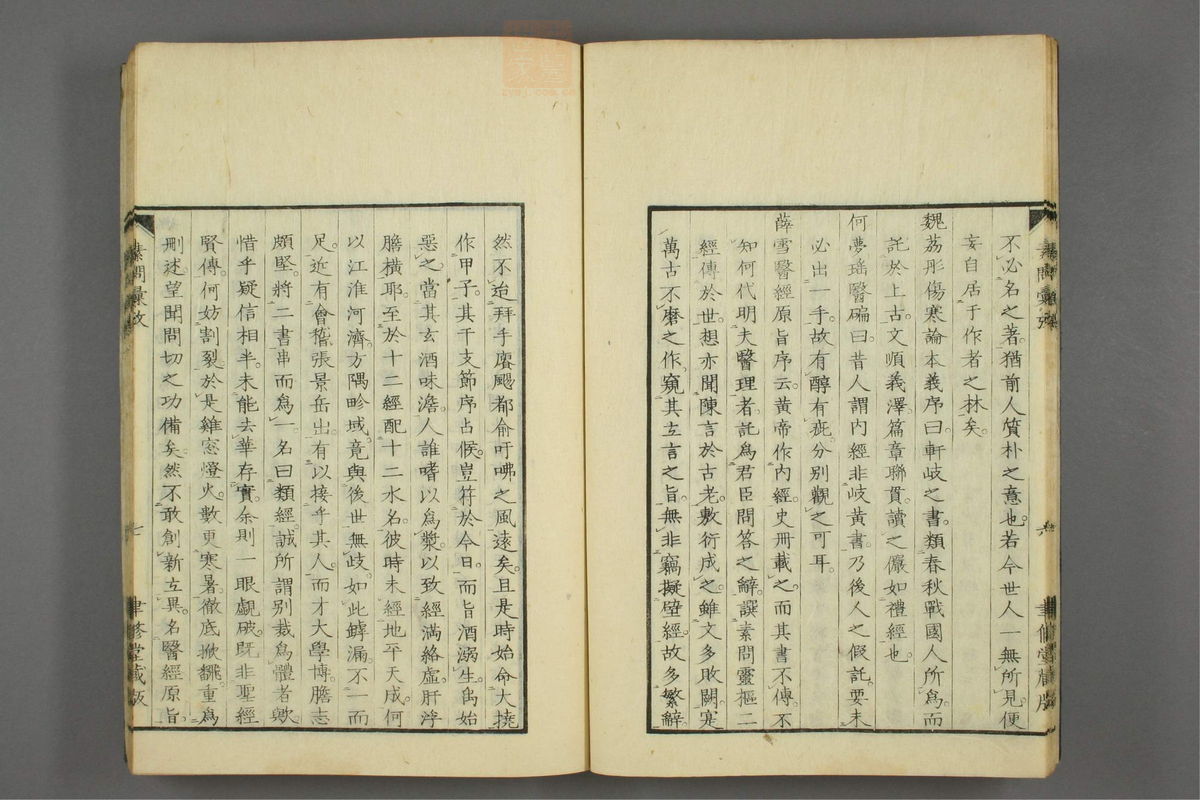 不必名之著猶前人質朴之意也若今世人一無所見便
妄自居于作者之林矣
魏荔彤傷寒論本義序曰軒岐之書類春秋戰國人所爲而
託於上古文順義澤篇章聯貫讀之儼如禮經也
何夢瑤醫碥曰昔人謂內經非岐黃書乃後人之假託要未
必出一手故有醇有疵分別觀之可耳
薛雪醫經原旨序云黃帝作內經史册載之而其書不傳不
知何代明夫醫理者託爲君臣問答之辭譔素問靈樞二
經傳於世想亦聞陳言於古老敷衍成之雖文多敗闕寔
萬古不磨之作窺其立言之旨無非竊擬壁經故多繁辭
然不迨拜手賡颺都俞吁咈之風遠矣且是時始命大撓
作甲子其干支節序占候豈符於今日而旨酒溺生禹始
惡之當其玄酒味澹人誰嗜以爲漿以致經滿絡虛肝浮
膽橫耶至於十二經配十二水名彼時未經地平天成何
以江淮河濟方隅畛域竟與後世無歧如此罅漏不一而
足近有會稽張景岳出有以接乎其人而才大學博膽志
頗堅將二書串而爲一名曰類經誠所謂別裁爲體者歟
惜乎疑信相半未能去華存實余則一眼覷破既非聖經
賢傳何妨割裂於是雞窓燈火數更寒暑徹底掀翻重爲
刪述望聞問切之功備矣然不敢創新立異名醫經原旨
素問彙攷
七
聿修堂藏版